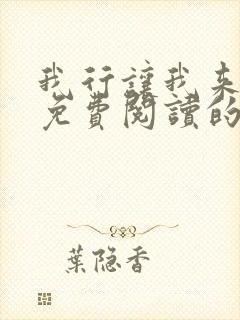 我行讓我來
免費閱讀的
葉隐香